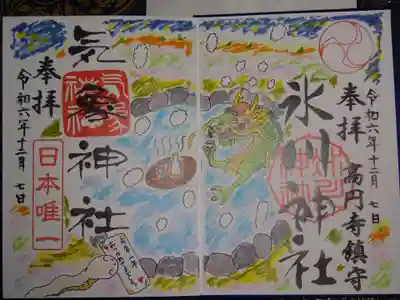 奉拝
高円寺鎮守
令和六年十二月 七日
氷川神社
気象神社
奉拝
令和六年十二月 七日
日本唯一